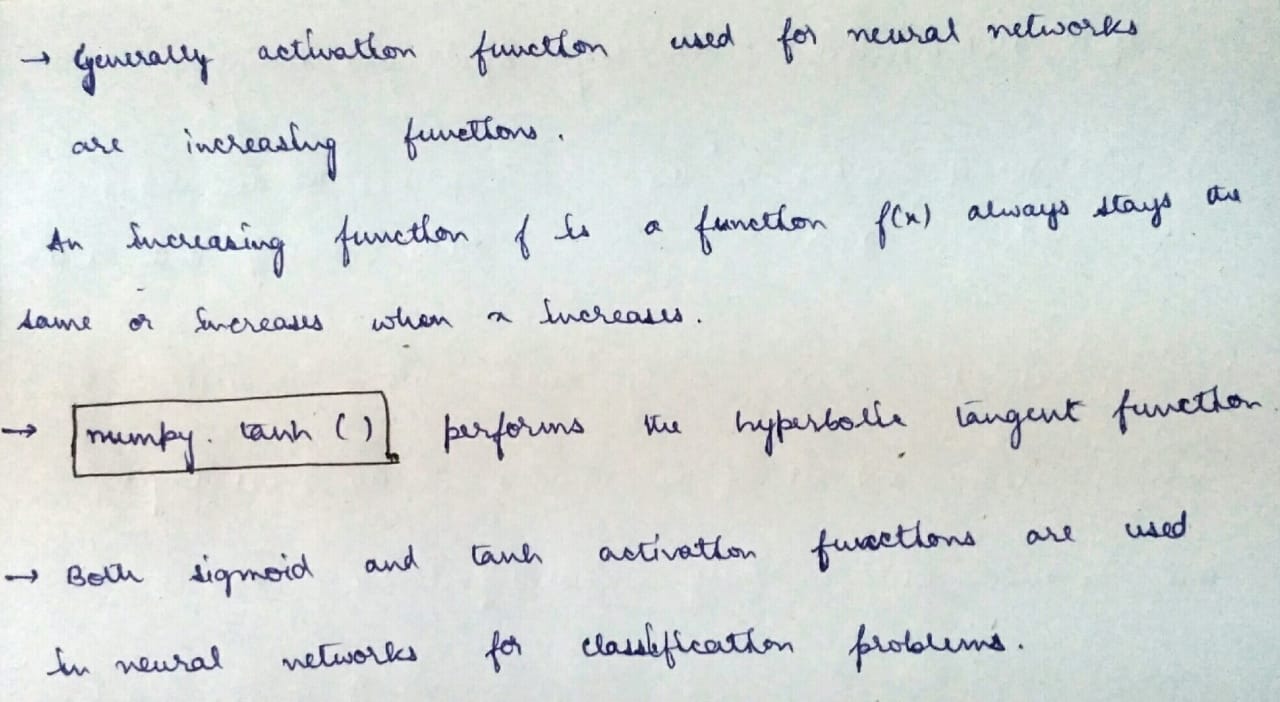 → Generally activation function used for neural networks
are increasing functions.
An increasing function f is a function f(x) always stays the
same or increases when x increases.
→ numpy. tanh () performs the hyperbolic tangent function
→ Both sigmoid and tanh activation functions are used
in neural networks for classification problems.